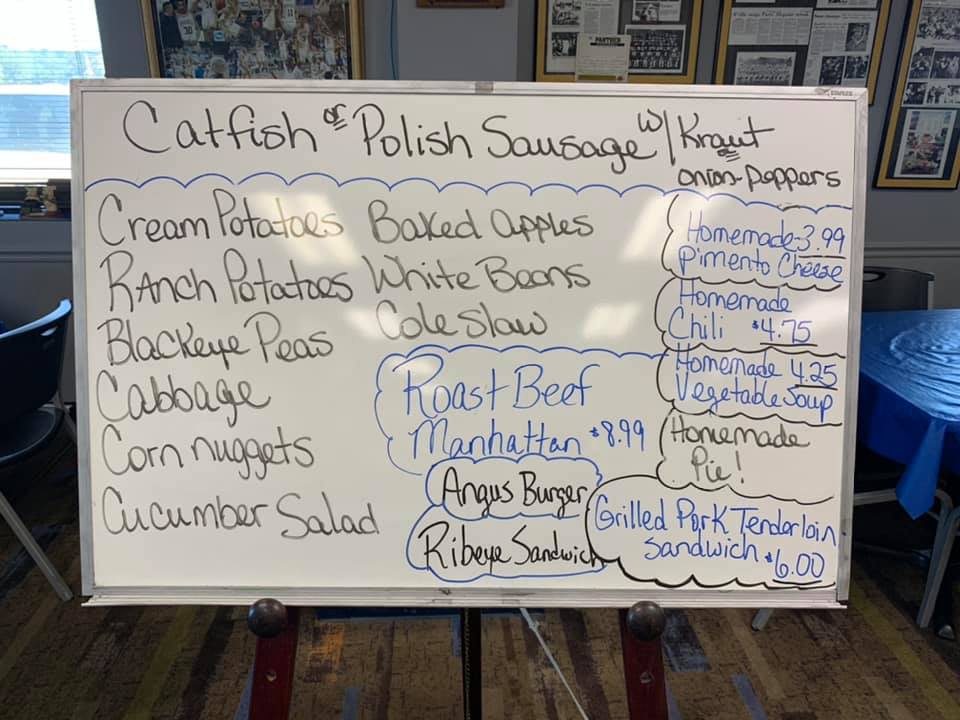 Catfish or Polish Sausage w/ Kraut
onion-peppers
Cream Potatoes
Ranch Potatoes
Blackeye Peas
Cabbage
Corn nuggets
Cucumber Salad
Baked Apples
White Beans
Cole Slaw
Roast Beef
Manhattan $8.99
Angus Burger
Ribeye Sandwich
Homemade-3.99
Pimento Cheese
Homemade
Chili $4.75
Homemade 4.25
Vegetable Soup
Homemade
Pie!
Grilled Pork Tenderloin
Sandwich $6.00
STAPLES